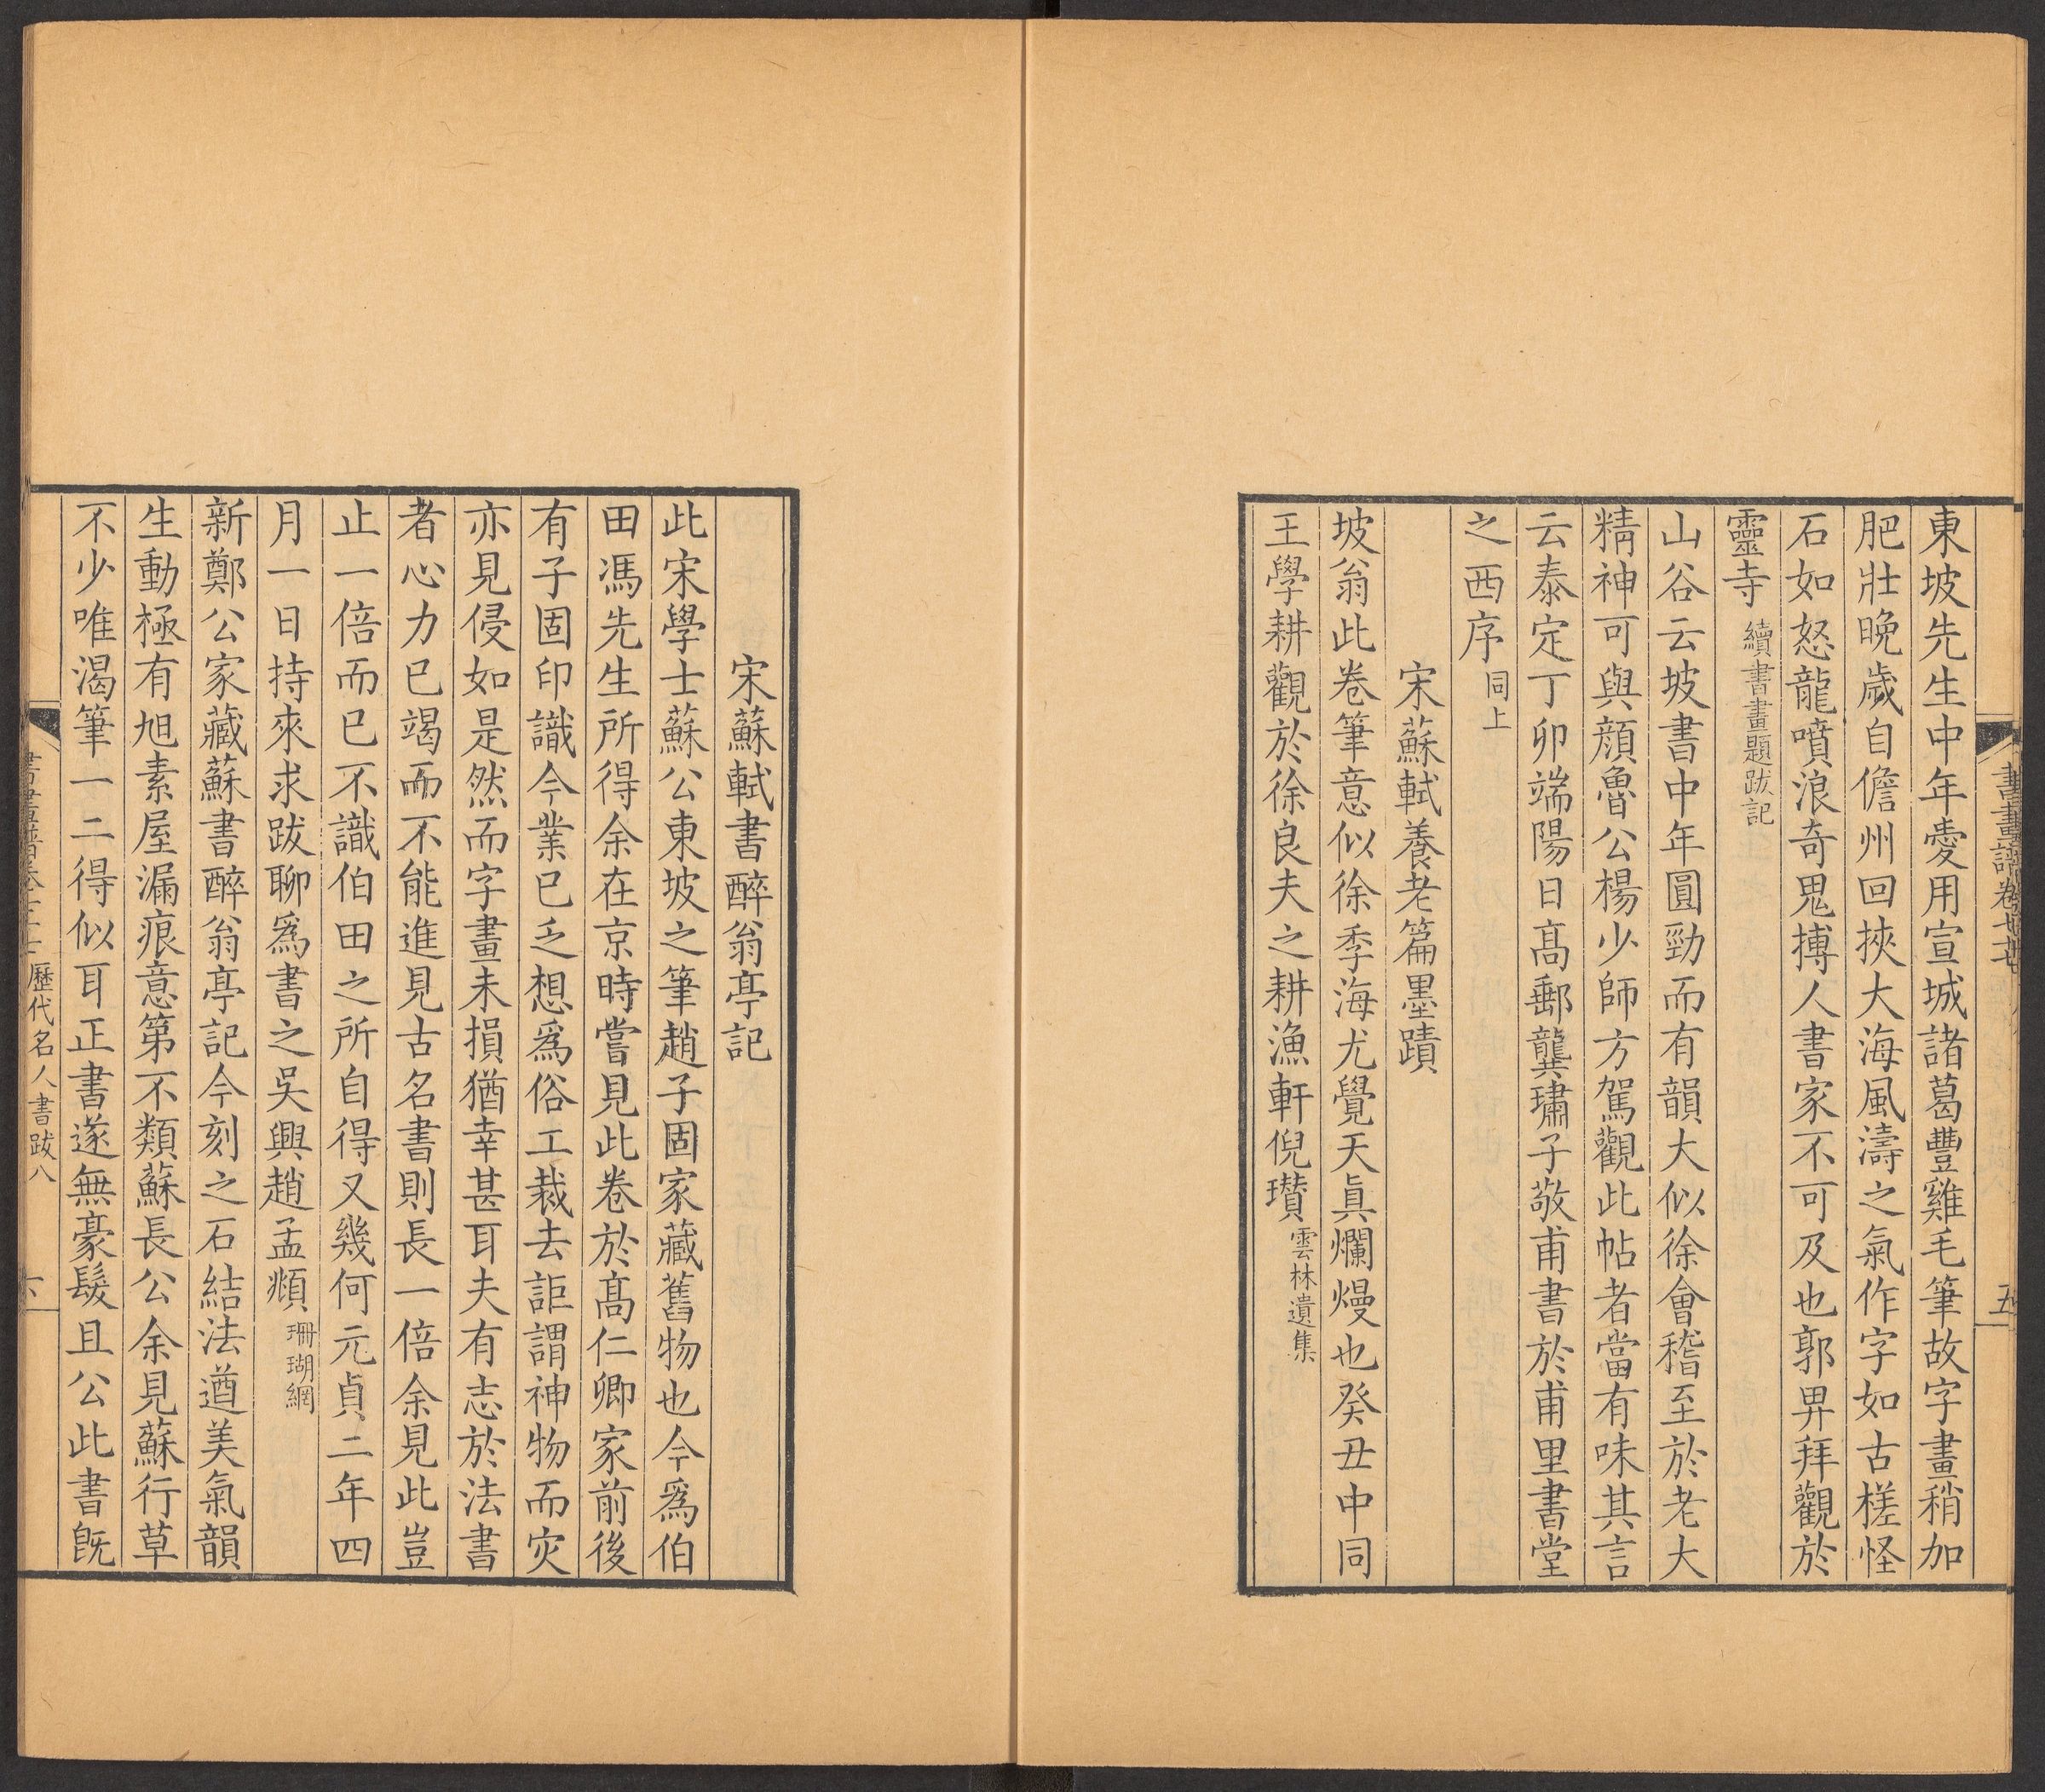 東坡先生中年愛用宣城諸葛豐雞毛筆故字畫稍加
肥壯晚歲自儋州回挾大海風濤之氣作字如古槎怪
石如怒龍噴浪奇鬼搏人書家不可及也郭畀拜觀於
靈寺續書畫題跋記
山谷云坡書中年圓勁而有韻大似徐會稽至於老大
精神可與顔魯公楊少師方駕觀此帖者當有味其言
云泰定丁卯端陽日高郵龔璛子敬甫書於甫里書堂
之西序同上
宋蘇軾養老篇墨蹟
坡翁此卷筆意似徐季海尤覺天眞爛熳也癸丑中同
王學耕觀於徐良夫之耕漁軒倪瓚雲林遺集
書畫譜卷七十七
五
宋蘇軾書醉翁亭記
此宋學士蘇公東坡之筆趙子固家藏舊物也今爲伯
田馮先生所得余在京時嘗見此卷於高仁卿家前後
有子固印識今業已乏想爲俗工裁去詎謂神物而灾
亦見侵如是然而字畫未損猶幸甚耳夫有志於法書
者心力已竭而不能進見古名書則長一倍余見此豈
止一倍而已不識伯田之所自得又幾何元貞二年四
月一日持來求跋聊爲書之吳興趙孟頫珊瑚網
新鄭公家藏蘇書醉翁亭記今刻之石結法遒美氣韻
生動極有旭素屋漏痕意第不類蘇長公余見蘇行草
不少唯渴筆一二得似耳正書遂無豪髮且公此書旣
書畫譜卷七十七 歷代名人書跋八
六